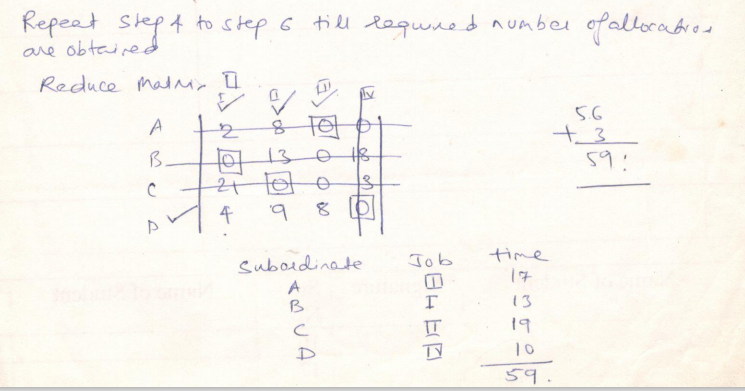 Repeat Step 4 to step 6 till required number of allocation
are obtained
Reduce Matrix II
I II III IV
A 2 8 0 0
B 0 13 0 18
C 21 0 0 3
D 4 9 8 0
56
+ 3
59.
Subordinate Job time
A III 17
B I 13
C II 19
D IV 10
59.